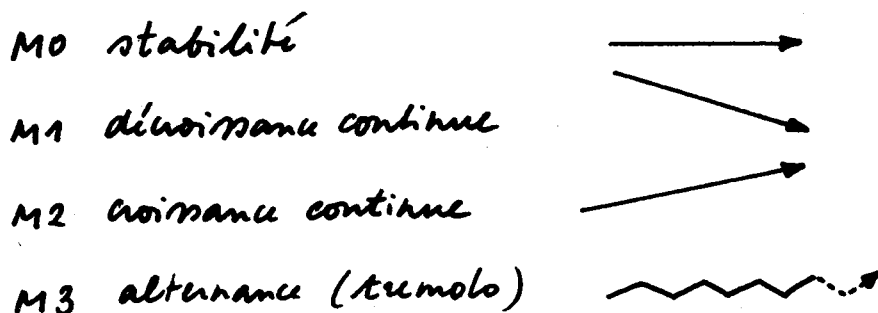 M0 stabilité
M1 décroissance continue
M2 croissance continue
M3 alternance (tremolo)